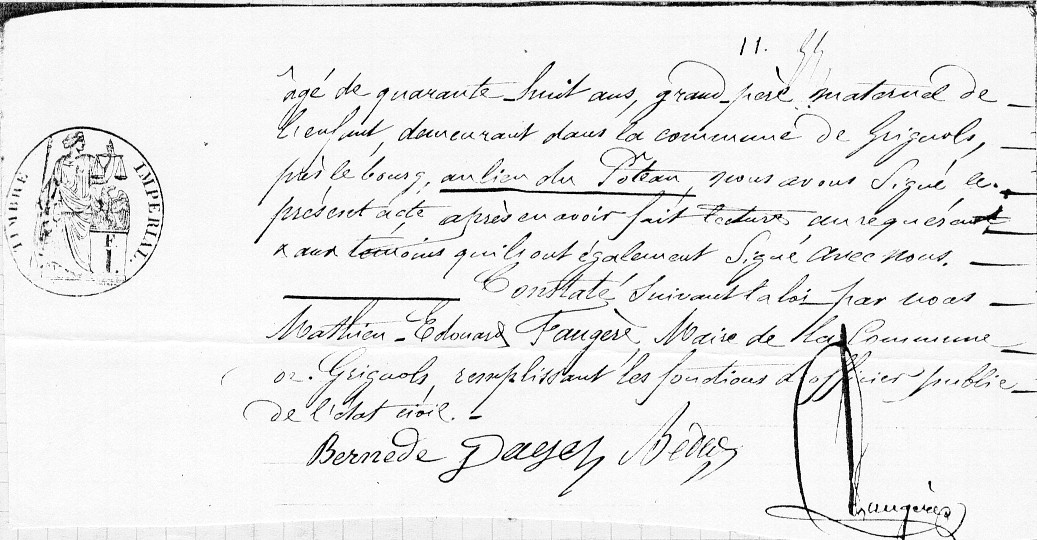 11.
TIMBRE IMPERIAL.
âgé de quarante-huit ans, grand-père maternel de
l'enfant, demeurant dans la commune de Grignols,
près le bourg, au lieu du Poteau, nous avons Signé le
présent acte après en avoir fait lecture au requérant
& aux témoins qu'ils ont également Signé avec nous.
Constaté, Suivant la loi par nous
Mathieu-Edouard Faugère, Maire de la Commune
de Grignols, remplissant les fonctions d'officier public
de l'état civil.
Bernède Dayez
Faugère